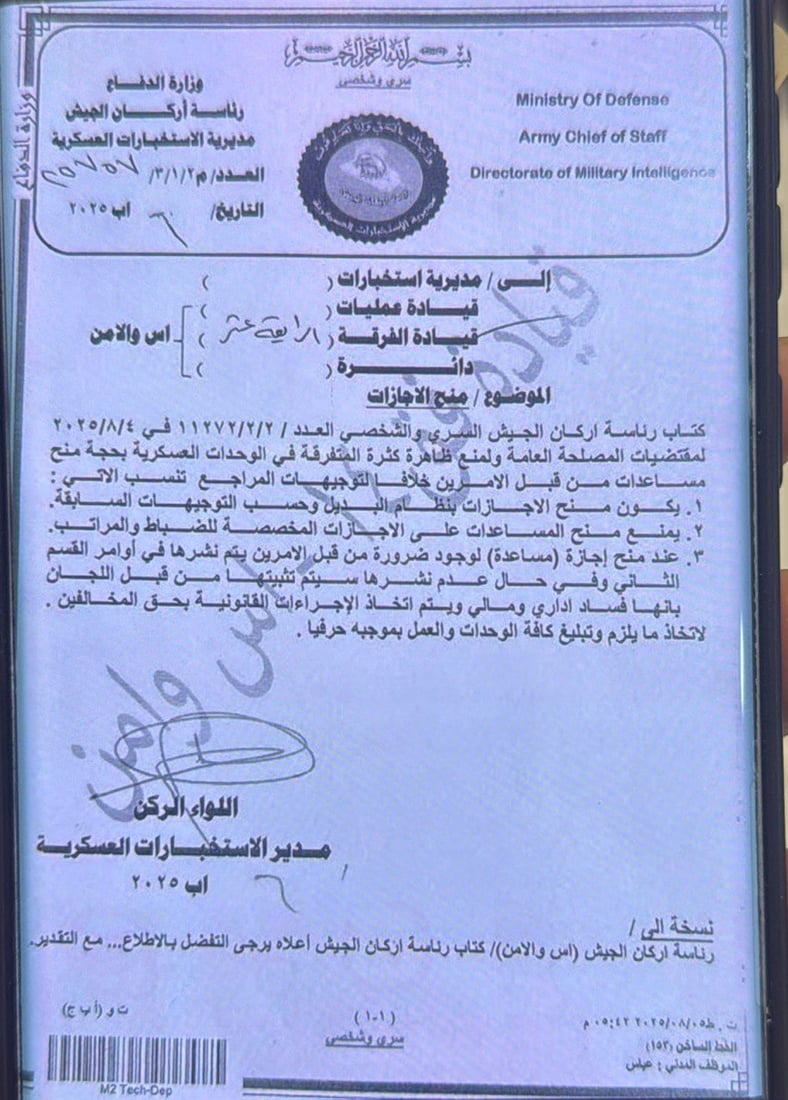 بسم الله الرحمن الرحيم
سري وشخصي
وزارة الدفاع
رئاسة أركان الجيش
مديرية الاستخبارات العسكرية
العدد/ م٣/١/٢/
التاريخ/ آب ٢٠٢٥
Ministry Of Defense
Army Chief of Staff
Directorate of Military Intelligence
وزارة الدفاع
مديرية الاستخبارات العسكرية
إلى / مديرية استخبارات ( )
قيادة عمليات ( )
قيادة الفرقة ( الرابعة عشر ) اس والامن
دائرة ( )
الموضوع / منح الاجازات
كتاب رئاسة اركان الجيش السري والشخصي العدد / ١١٢٧٢/٢/٢ في ٢٠٢٥/٨/٤
لمقتضيات المصلحة العامة ولمنع ظاهرة كثرة المتفرقة في الوحدات العسكرية بحجة منح
مساعدات من قبل الامرين خلافا لتوجيهات المراجع تنسب الاتي :
١. يكون منح الاجازات بنظام البديل وحسب التوجيهات السابقة.
٢. يمنع منح المساعدات على الاجازات المخصصة للضباط والمراتب.
٣. عند منح إجازة (مساعدة) لوجود ضرورة من قبل الامرين يتم نشرها في أوامر القسم
الثاني وفي حال عدم نشرها سيتم تثبيتها من قبل اللجان
بانها فساد اداري ومالي ويتم اتخاذ الإجراءات القانونية بحق المخالفين .
لاتخاذ ما يلزم وتبليغ كافة الوحدات والعمل بموجبه حرفيا .
اللواء الركن
مدير الاستخبارات العسكرية
٦ / اب ٢٠٢٥
نسخة الى /
رئاسة اركان الجيش (اس والامن)/ كتاب رئاسة اركان الجيش أعلاه يرجى التفضل بالاطلاع... مع التقدير.
ت و (أ ب ج)
(١-١)
سري وشخصي
ت . ط ٢٠٢٥/٠٨/٠٥ ٠٥:٤٢ م
الخط الساخن (١٥٣)
الموظف المدني : عباس
M2 Tech-Dep